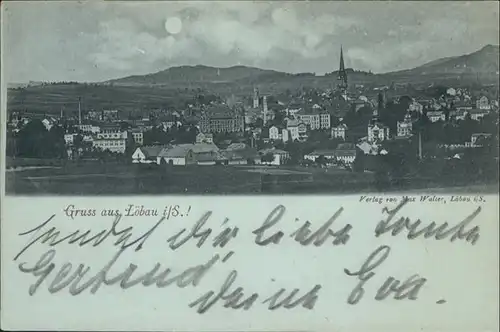 Gruss aus Löbau i/S.!
Verlag von Max Walter, Löbau i/S.
sendet dir liebe Tante
Gertrud deine Eva.